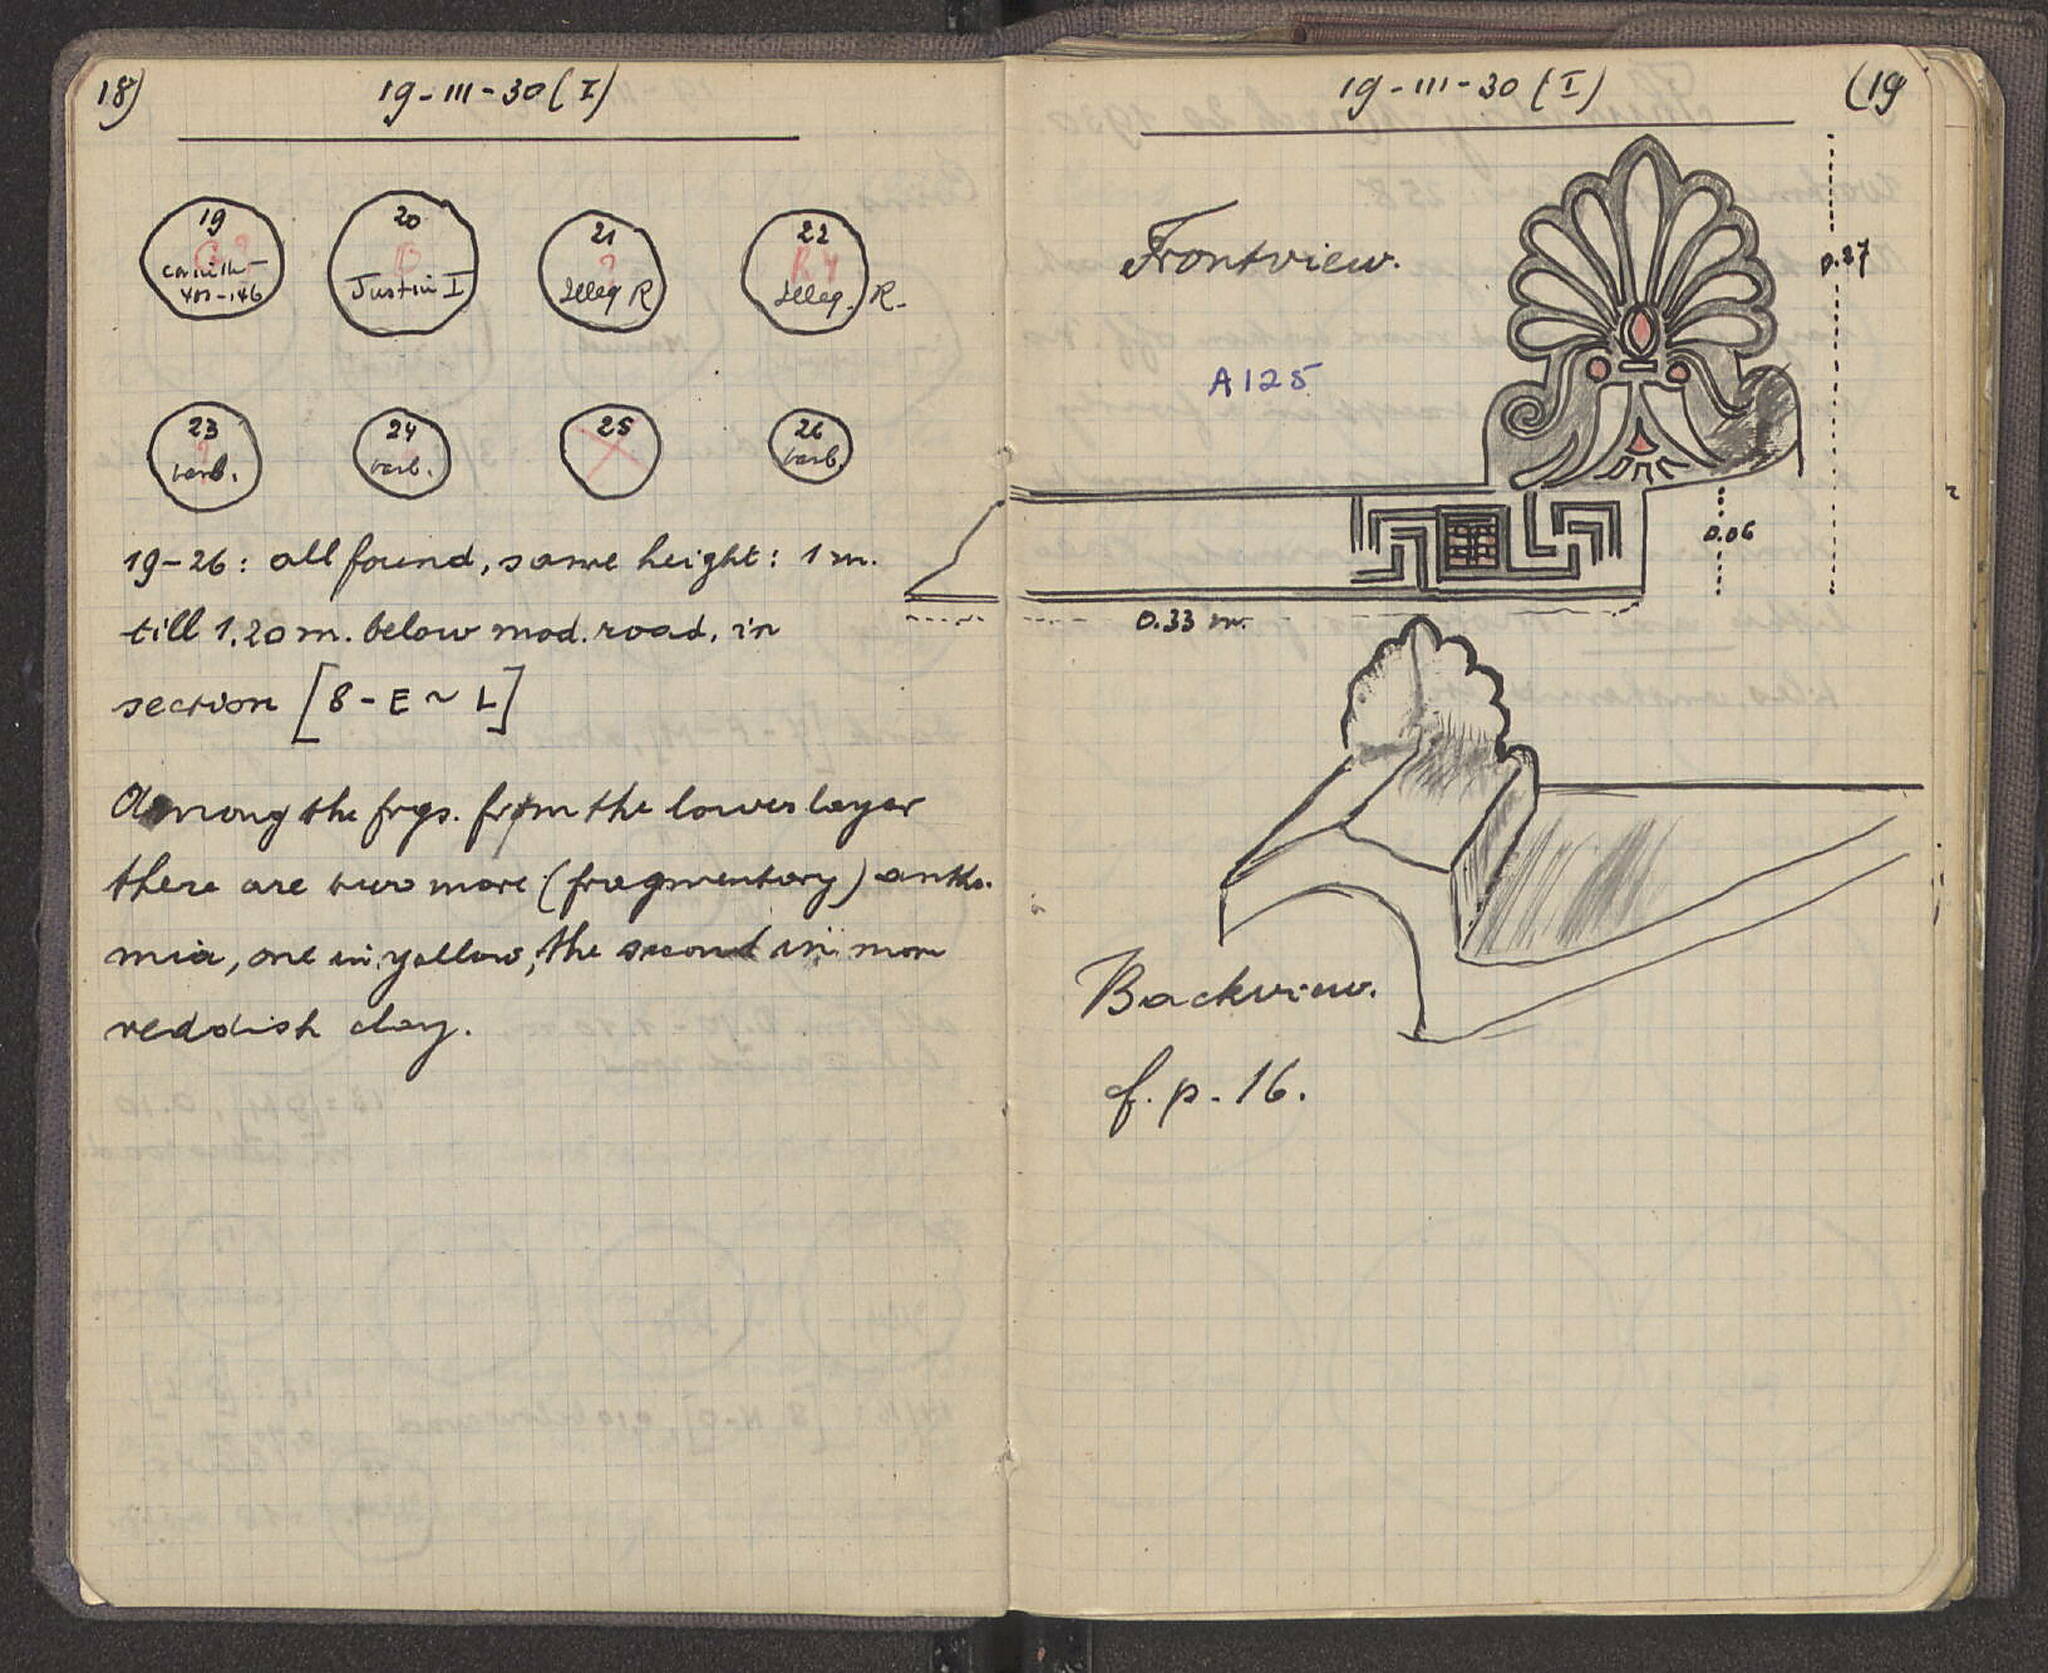 18)
19-III-30 (I)
19
G ?
corinth-
400-146
20
B
Justin I
21
?
illeg R
22
R 4
illeg. R.
23
?
barb.
24
barb.
25
26
barb.
19-26: all found, same height: 1 m.
till 1,20 m. below mod. road, in
section [8 - E ~ L]
Among the frgs. from the lower layer
there are two more (fragmentary) anthe-
mia, one in yellow, the second in more
reddish clay.
19-III-30 (I)
(19
Frontview.
0.27
A125
0.06
0.33 m.
Backview.
cf. p. 16.